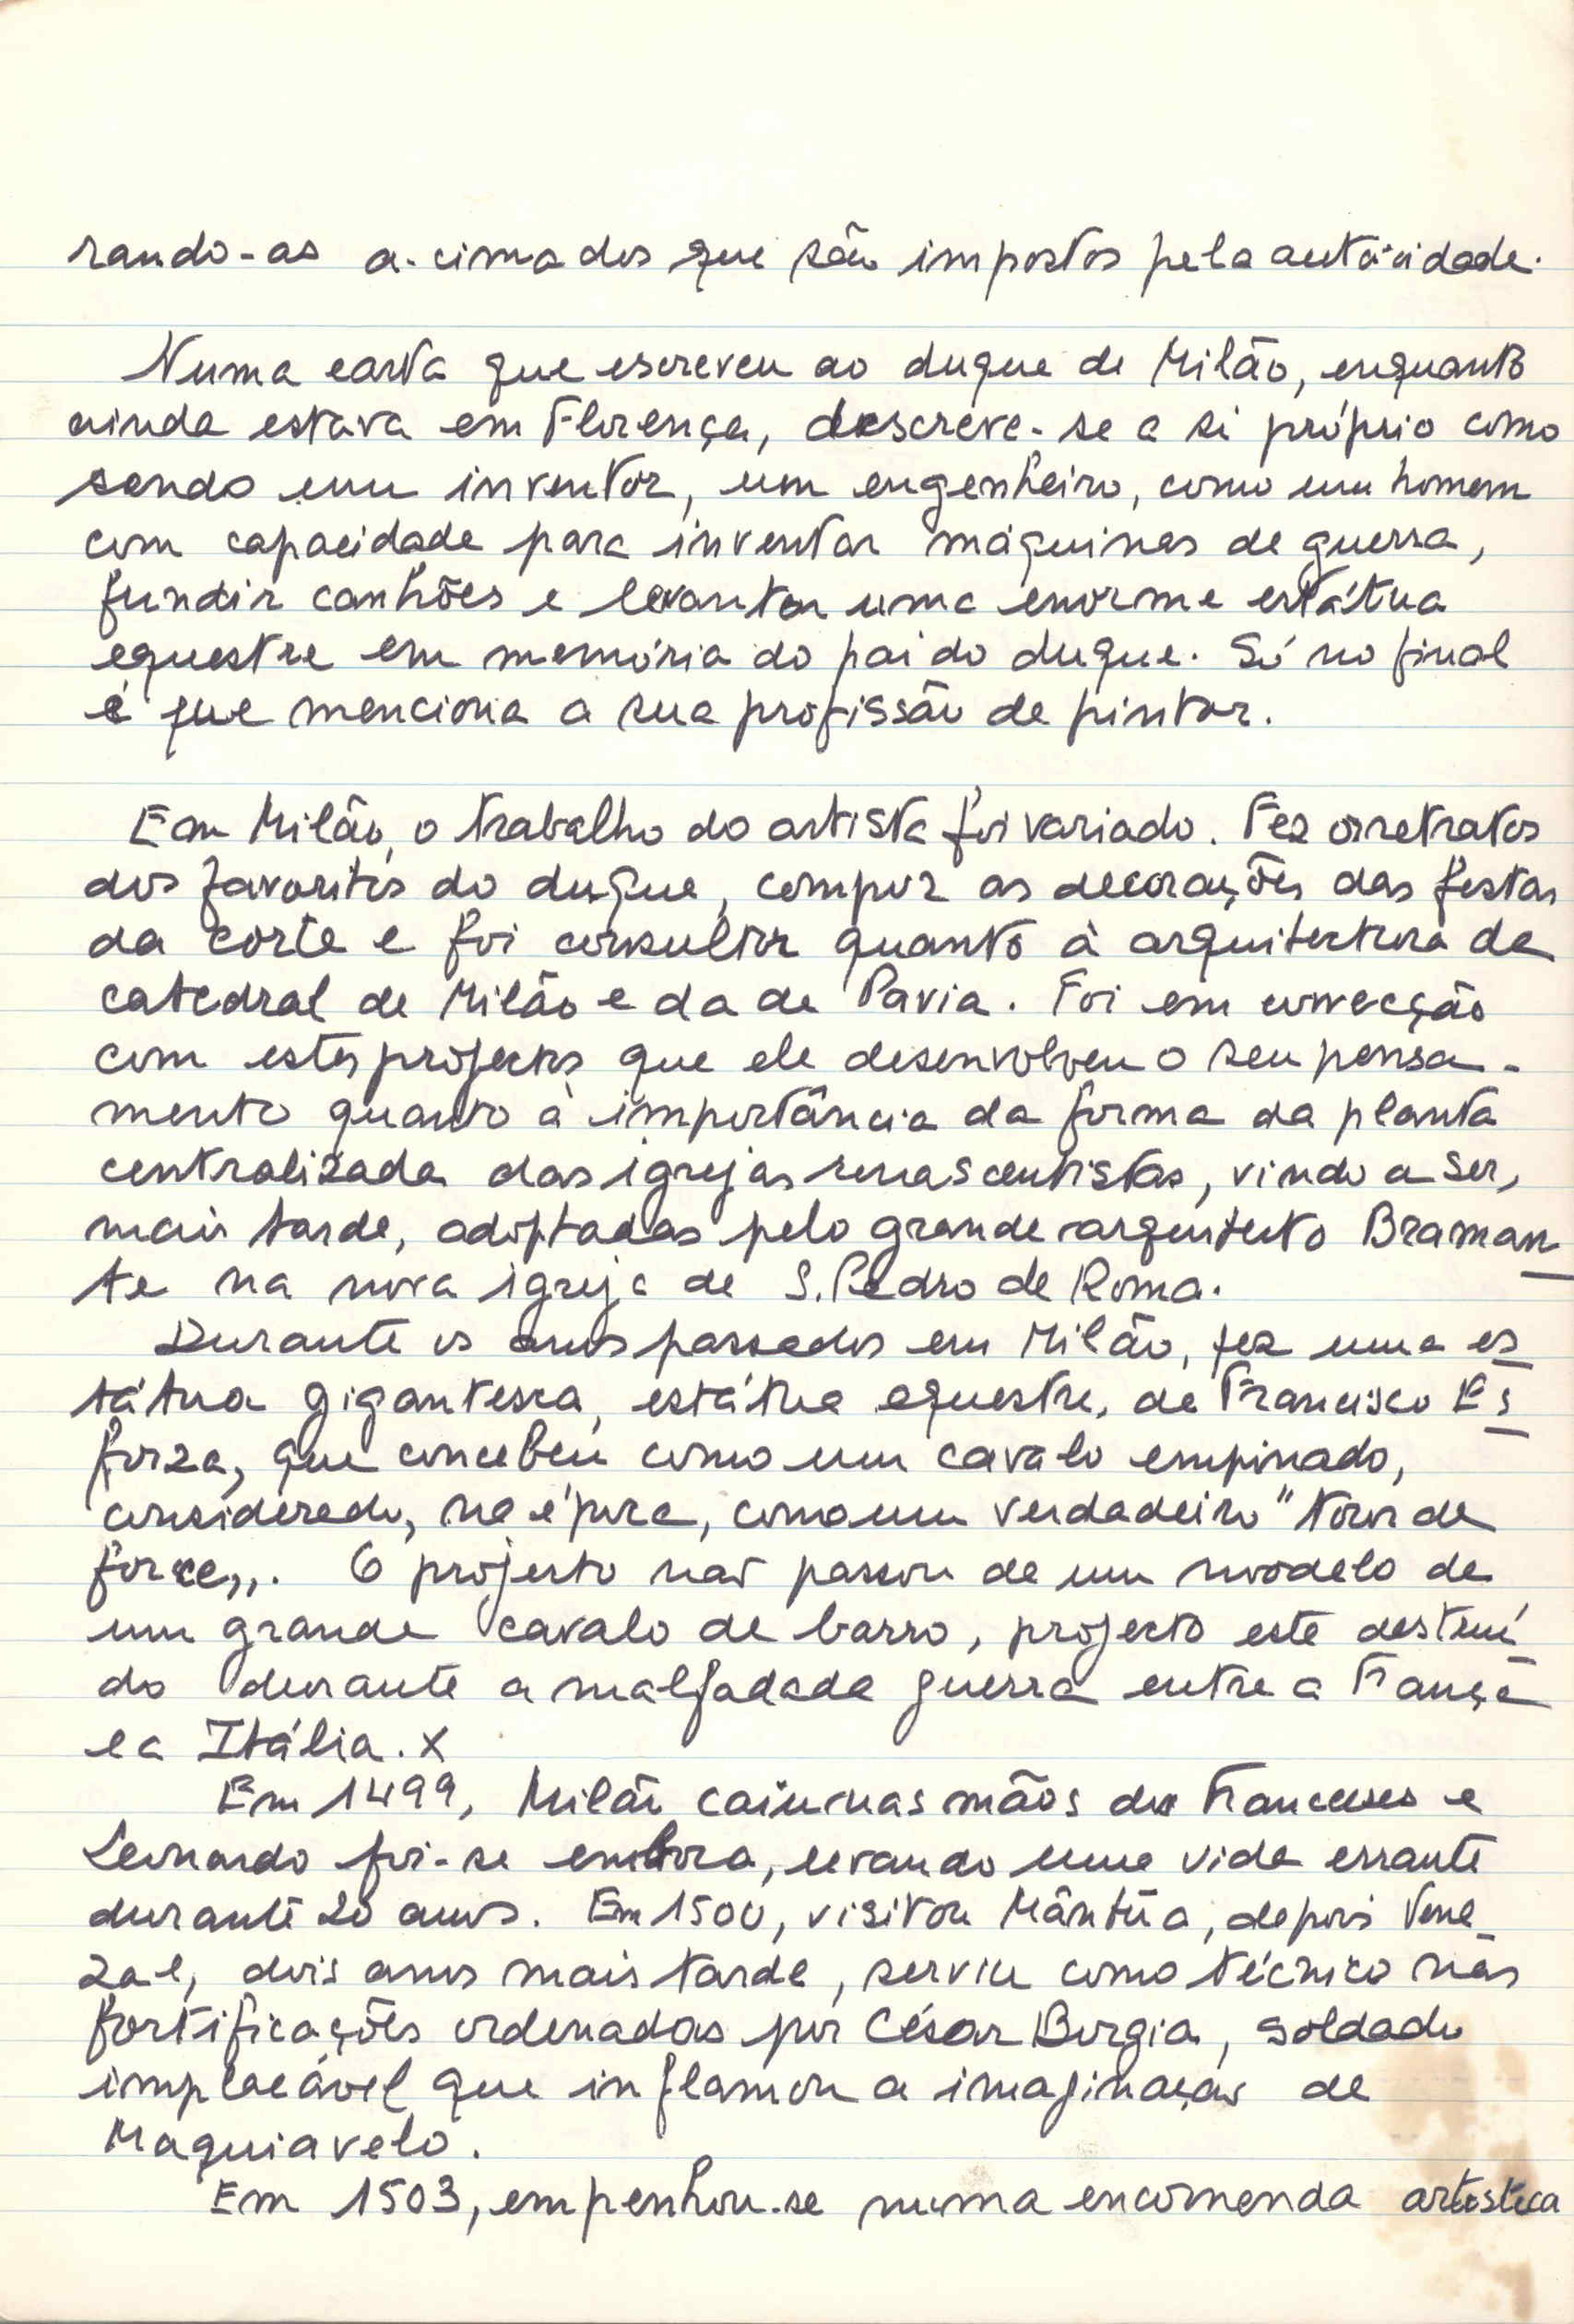 rando-as a-cima dos que são impostos pela autoridade.
Numa carta que escreveu ao duque de Milão, enquanto
ainda estava em Florença, descreve-se a si próprio como
sendo um inventor, um engenheiro, como um homem
com capacidade para inventar máquinas de guerra,
fundir canhões e levantar uma enorme estátua
equestre em memória do pai do duque. Só no final
é que menciona a sua profissão de pintor.
Em Milão, o trabalho do artista foi variado. Fez os retratos
dos favoritos do duque, compoz as decorações das festas
da corte e foi consultor quanto à arquitectura da
catedral de Milão e da de Pavia. Foi em connecção
com estes projectos que ele desenvolveu o seu pensa-
mento quanto à importância da forma da planta
centralizada das igrejas renascentistas, vindo a ser,
mais tarde, adoptadas pelo grande arquitecto Braman
te na nova igreja de S. Pedro de Roma.
Durante os anos passados em Milão, fez uma es
tátua gigantesca, estátua equestre, de Francisco Es
forza, que concebeu como um cavalo empinado,
considerado, na época, como um verdadeiro "tour de
force,,. O projecto não passou de um modelo de
um grande cavalo de barro, projecto este destruí
do durante a malfadada guerra entre a França
e a Itália. x
Em 1499, Milão caiu nas mãos dos Franceses e
Leonardo foi-se embora, levando uma vida errante
durante 20 anos. Em 1500, visitou Mântua, depois Vene
za e, dois anos mais tarde, serviu como técnico nas
fortificações ordenadas por César Borgia, soldado
implacável que inflamou a imaginação de
Maquiavelo.
Em 1503, empenhou-se numa encomenda artística